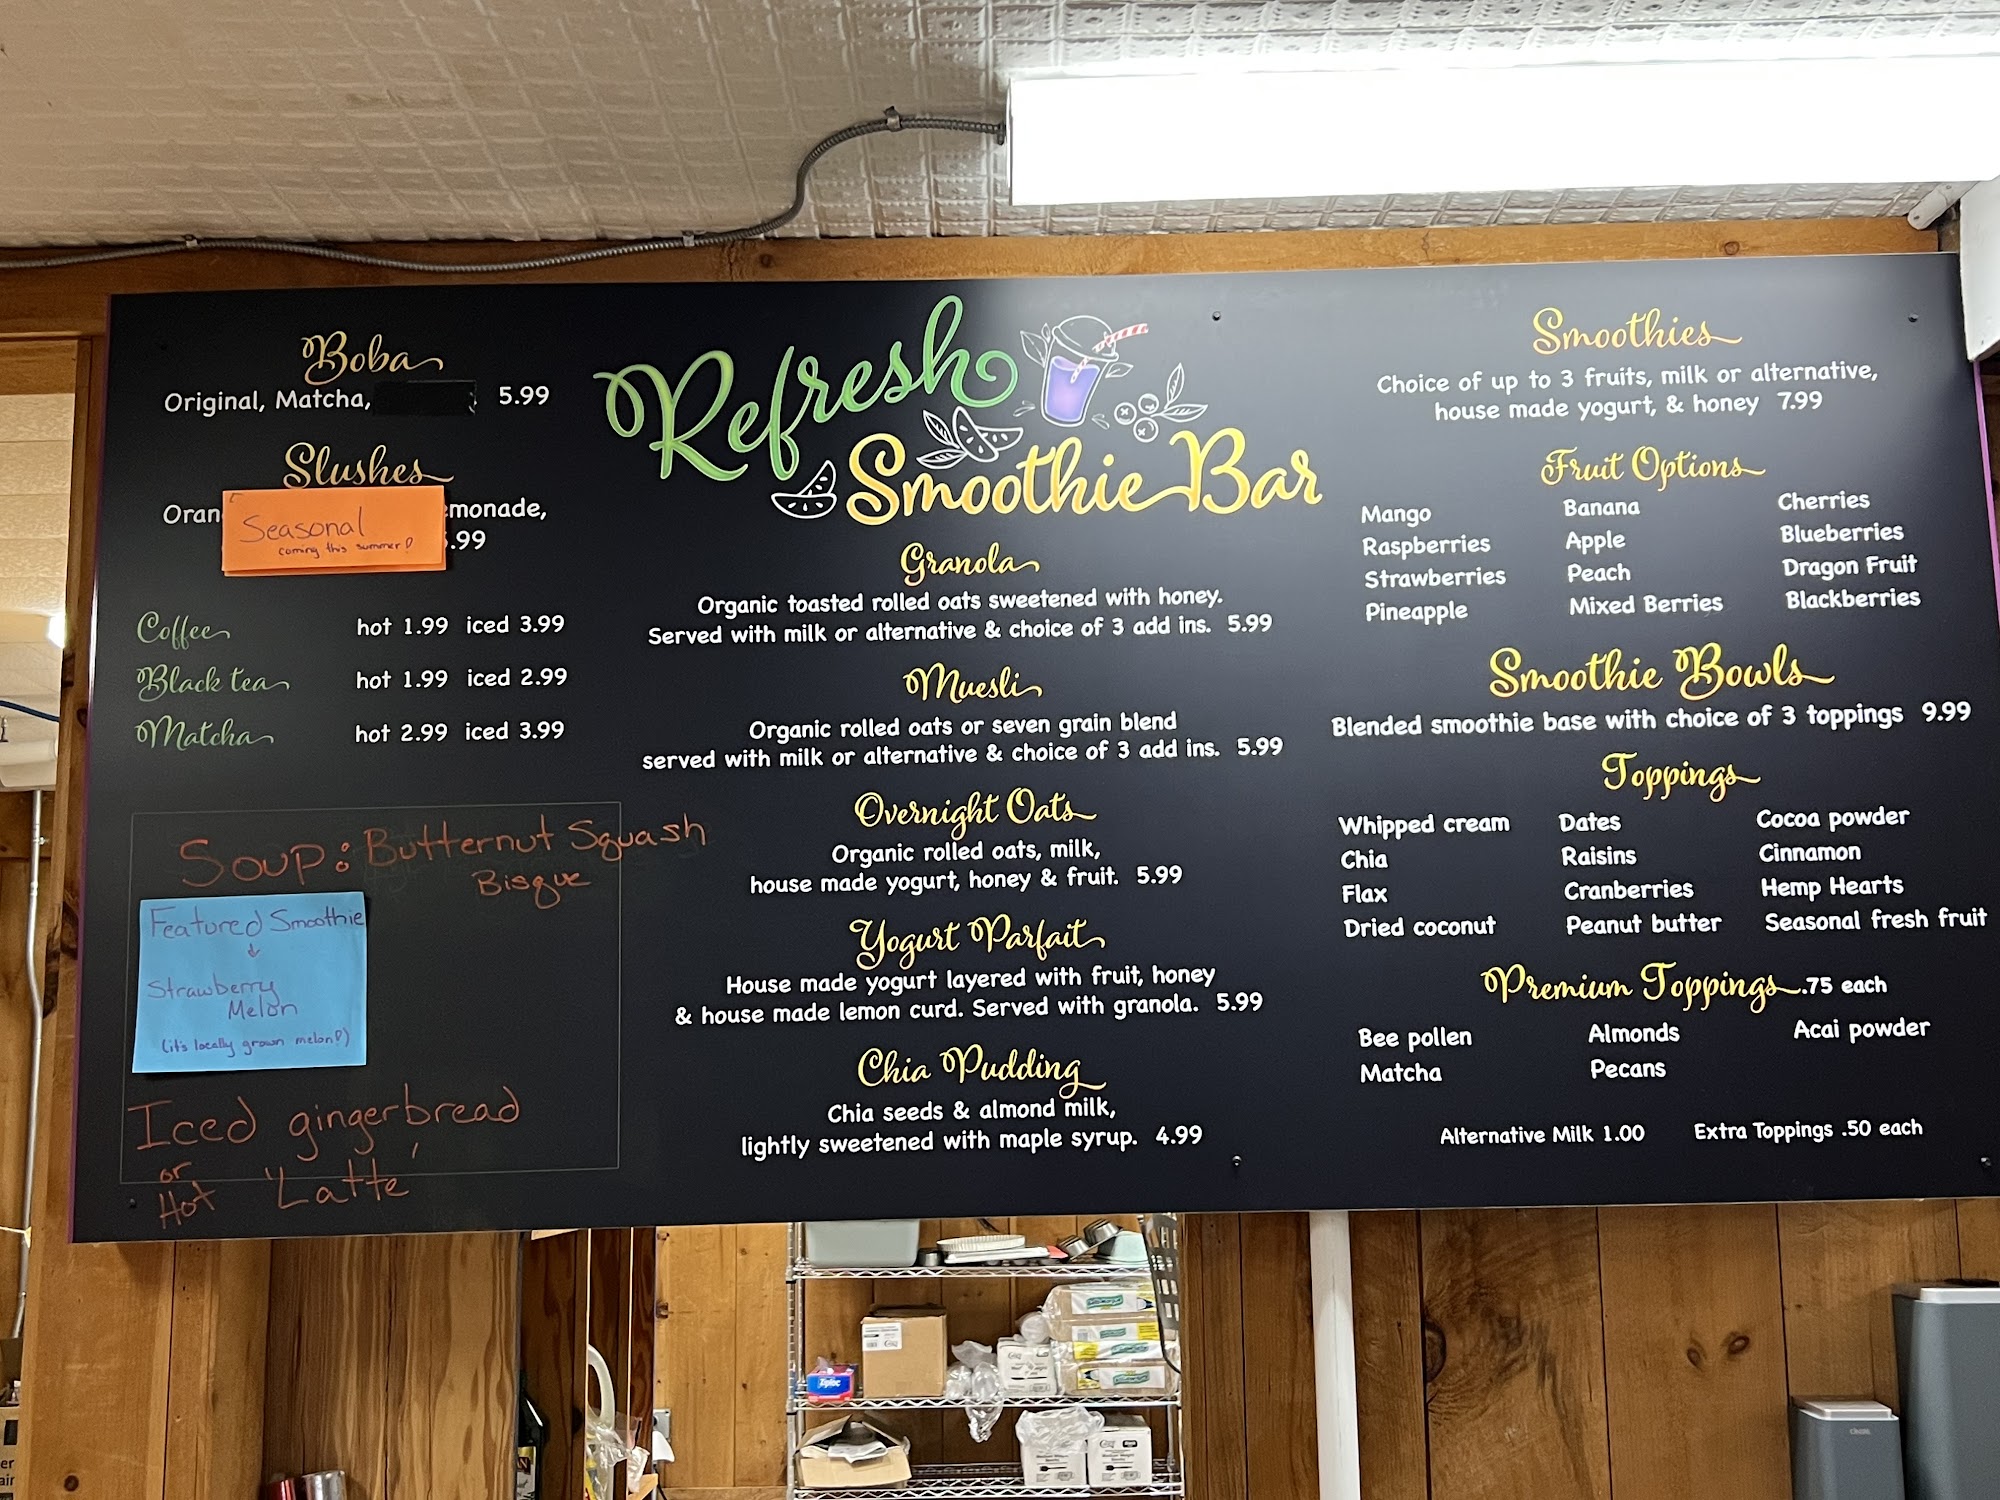 Refresh
Smoothie Bar
Boba
Original, Matcha, 5.99
Slushes
Seasonal
coming this summer!
emonade,
.99
Coffee hot 1.99 iced 3.99
Black tea hot 1.99 iced 2.99
Matcha hot 2.99 iced 3.99
Soup: Butternut Squash
Bisque
Featured Smoothie
Strawberry
Melon
(it's locally grown melon!)
Iced gingerbread
or
Hot "Latte"
Granola
Organic toasted rolled oats sweetened with honey.
Served with milk or alternative & choice of 3 add ins. 5.99
Muesli
Organic rolled oats or seven grain blend
served with milk or alternative & choice of 3 add ins. 5.99
Overnight Oats
Organic rolled oats, milk,
house made yogurt, honey & fruit. 5.99
Yogurt Parfait
House made yogurt layered with fruit, honey
& house made lemon curd. Served with granola. 5.99
Chia Pudding
Chia seeds & almond milk,
lightly sweetened with maple syrup. 4.99
Smoothies
Choice of up to 3 fruits, milk or alternative,
house made yogurt, & honey 7.99
Fruit Options
Mango Banana Cherries
Raspberries Apple Blueberries
Strawberries Peach Dragon Fruit
Pineapple Mixed Berries Blackberries
Smoothie Bowls
Blended smoothie base with choice of 3 toppings 9.99
Toppings
Whipped cream Dates Cocoa powder
Chia Raisins Cinnamon
Flax Cranberries Hemp Hearts
Dried coconut Peanut butter Seasonal fresh fruit
Premium Toppings .75 each
Bee pollen Almonds Acai powder
Matcha Pecans
Alternative Milk 1.00 Extra Toppings .50 each
Ziploc